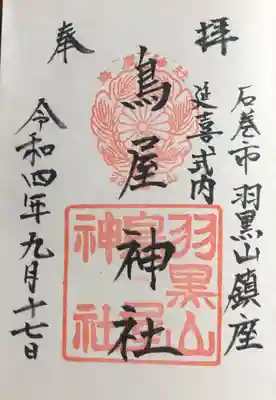 奉拝
石巻市 羽黒山鎮座
延喜式内
鳥屋神社
令和四年九月十七日
羽黒山
神社